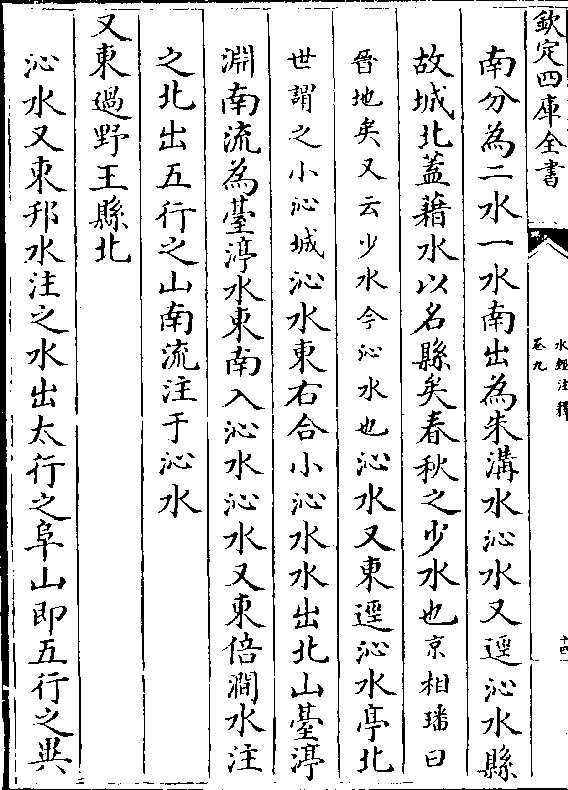 欽定四庫全書
水經注釋
卷九
南分為二水一水南出為朱溝水沁水又逕沁水縣
故城北蓋藉水以名縣矣春秋之少水也京相璠曰
晉地矣又云少水今沁水也沁水又東逕沁水亭北
世謂之小沁城沁水東右合小沁水水出北山臺渟
淵南流為臺渟水東南入沁水沁水又東倍澗水注
之北出五行之山南流注于沁水
又東過野王縣北
沁水又東邘水注之水出太行之阜山即五行之異